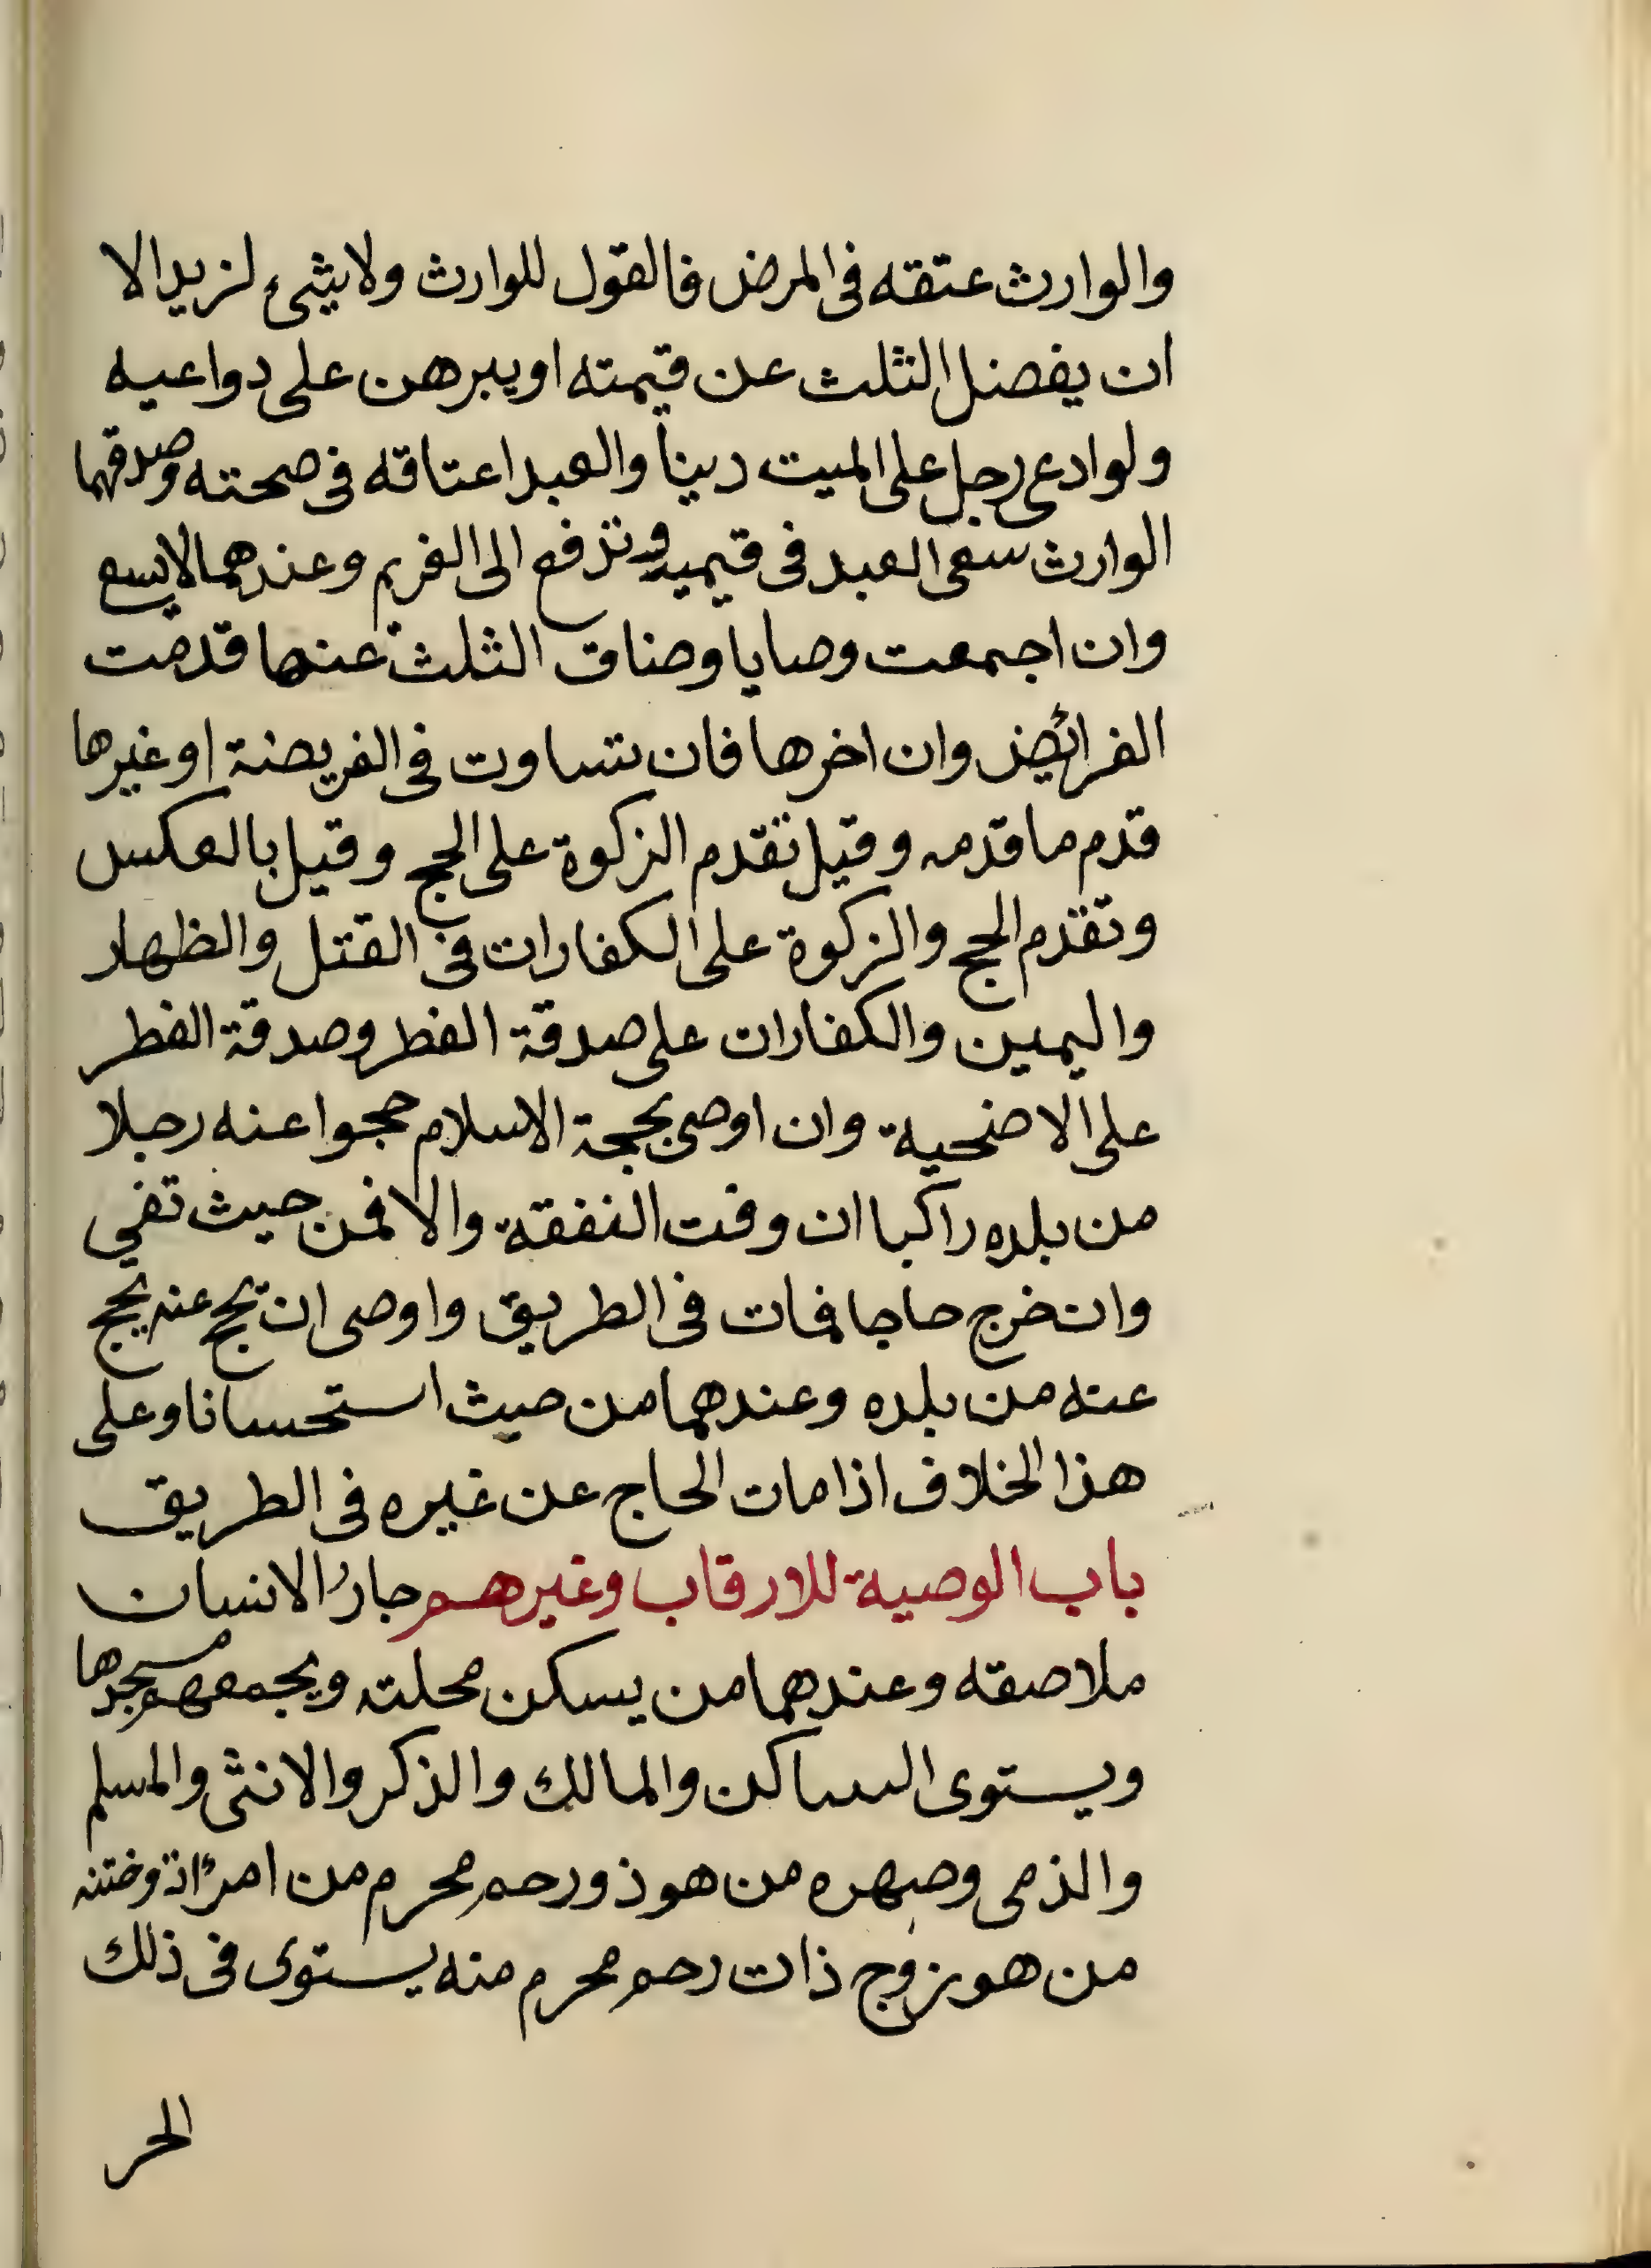 والوارث عتقه فى المرض فالقول للوارث ولا يثئ لزيد الا
ان يفضل الثلث عن قيمته او يبرهن على دواعيه
ولو ادعى رجل على الميت دينا والعبد اعتاقه فى صحته وصدقهما
الوارث سعى العبد فى قيمته وتدفع الى الغريم وعندهما لا يسع
وان اجمعت وصايا وضاق الثلث عنها قدمت
الفرائض وان اخرها فان تساوت فى الفريضة او غيرها
قدم ما قدمه وقيل تقدم الزكوة على الحج وقيل بالعكس
وتقدم الحج والزكوة على الكفارات فى القتل والظهار
واليمين والكفارات على صدقة الفطر وصدقة الفطر
على الاضحية وان اوصى بحجة الاسلام حجوا عنه رجلا
من بلده راكبا ان وفت النفقة والا فمن حيث تفي
وان خرج حاجا فمات فى الطريق واوصى ان يحج عنه يحج
عنه من بلده وعندهما من حيث استحسانا وعلى
هذا الخلاف اذا مات الحاج عن غيره فى الطريق
باب الوصية للارقاب وغيرهم جار الانسان
ملاصقه وعندهما من يسكن محلته ويجمعهم مسجدها
ويستوى الساكن والمالك والذكر والانثى والمسلم
والذمى وصهره من هو ذو رحم محرم من امرأته وختنه
من هو زوج ذات رحم محرم منه يستوى فى ذلك
الحر